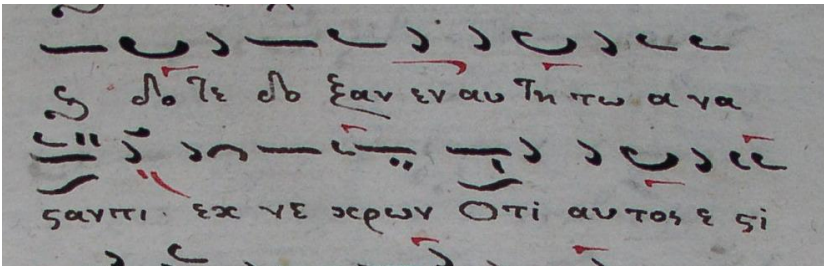 ϛ δο τε δο ξαν εν αυ τη τω α να
ϛαντι εκ νε κρων Οτι αυτος ε ϛι